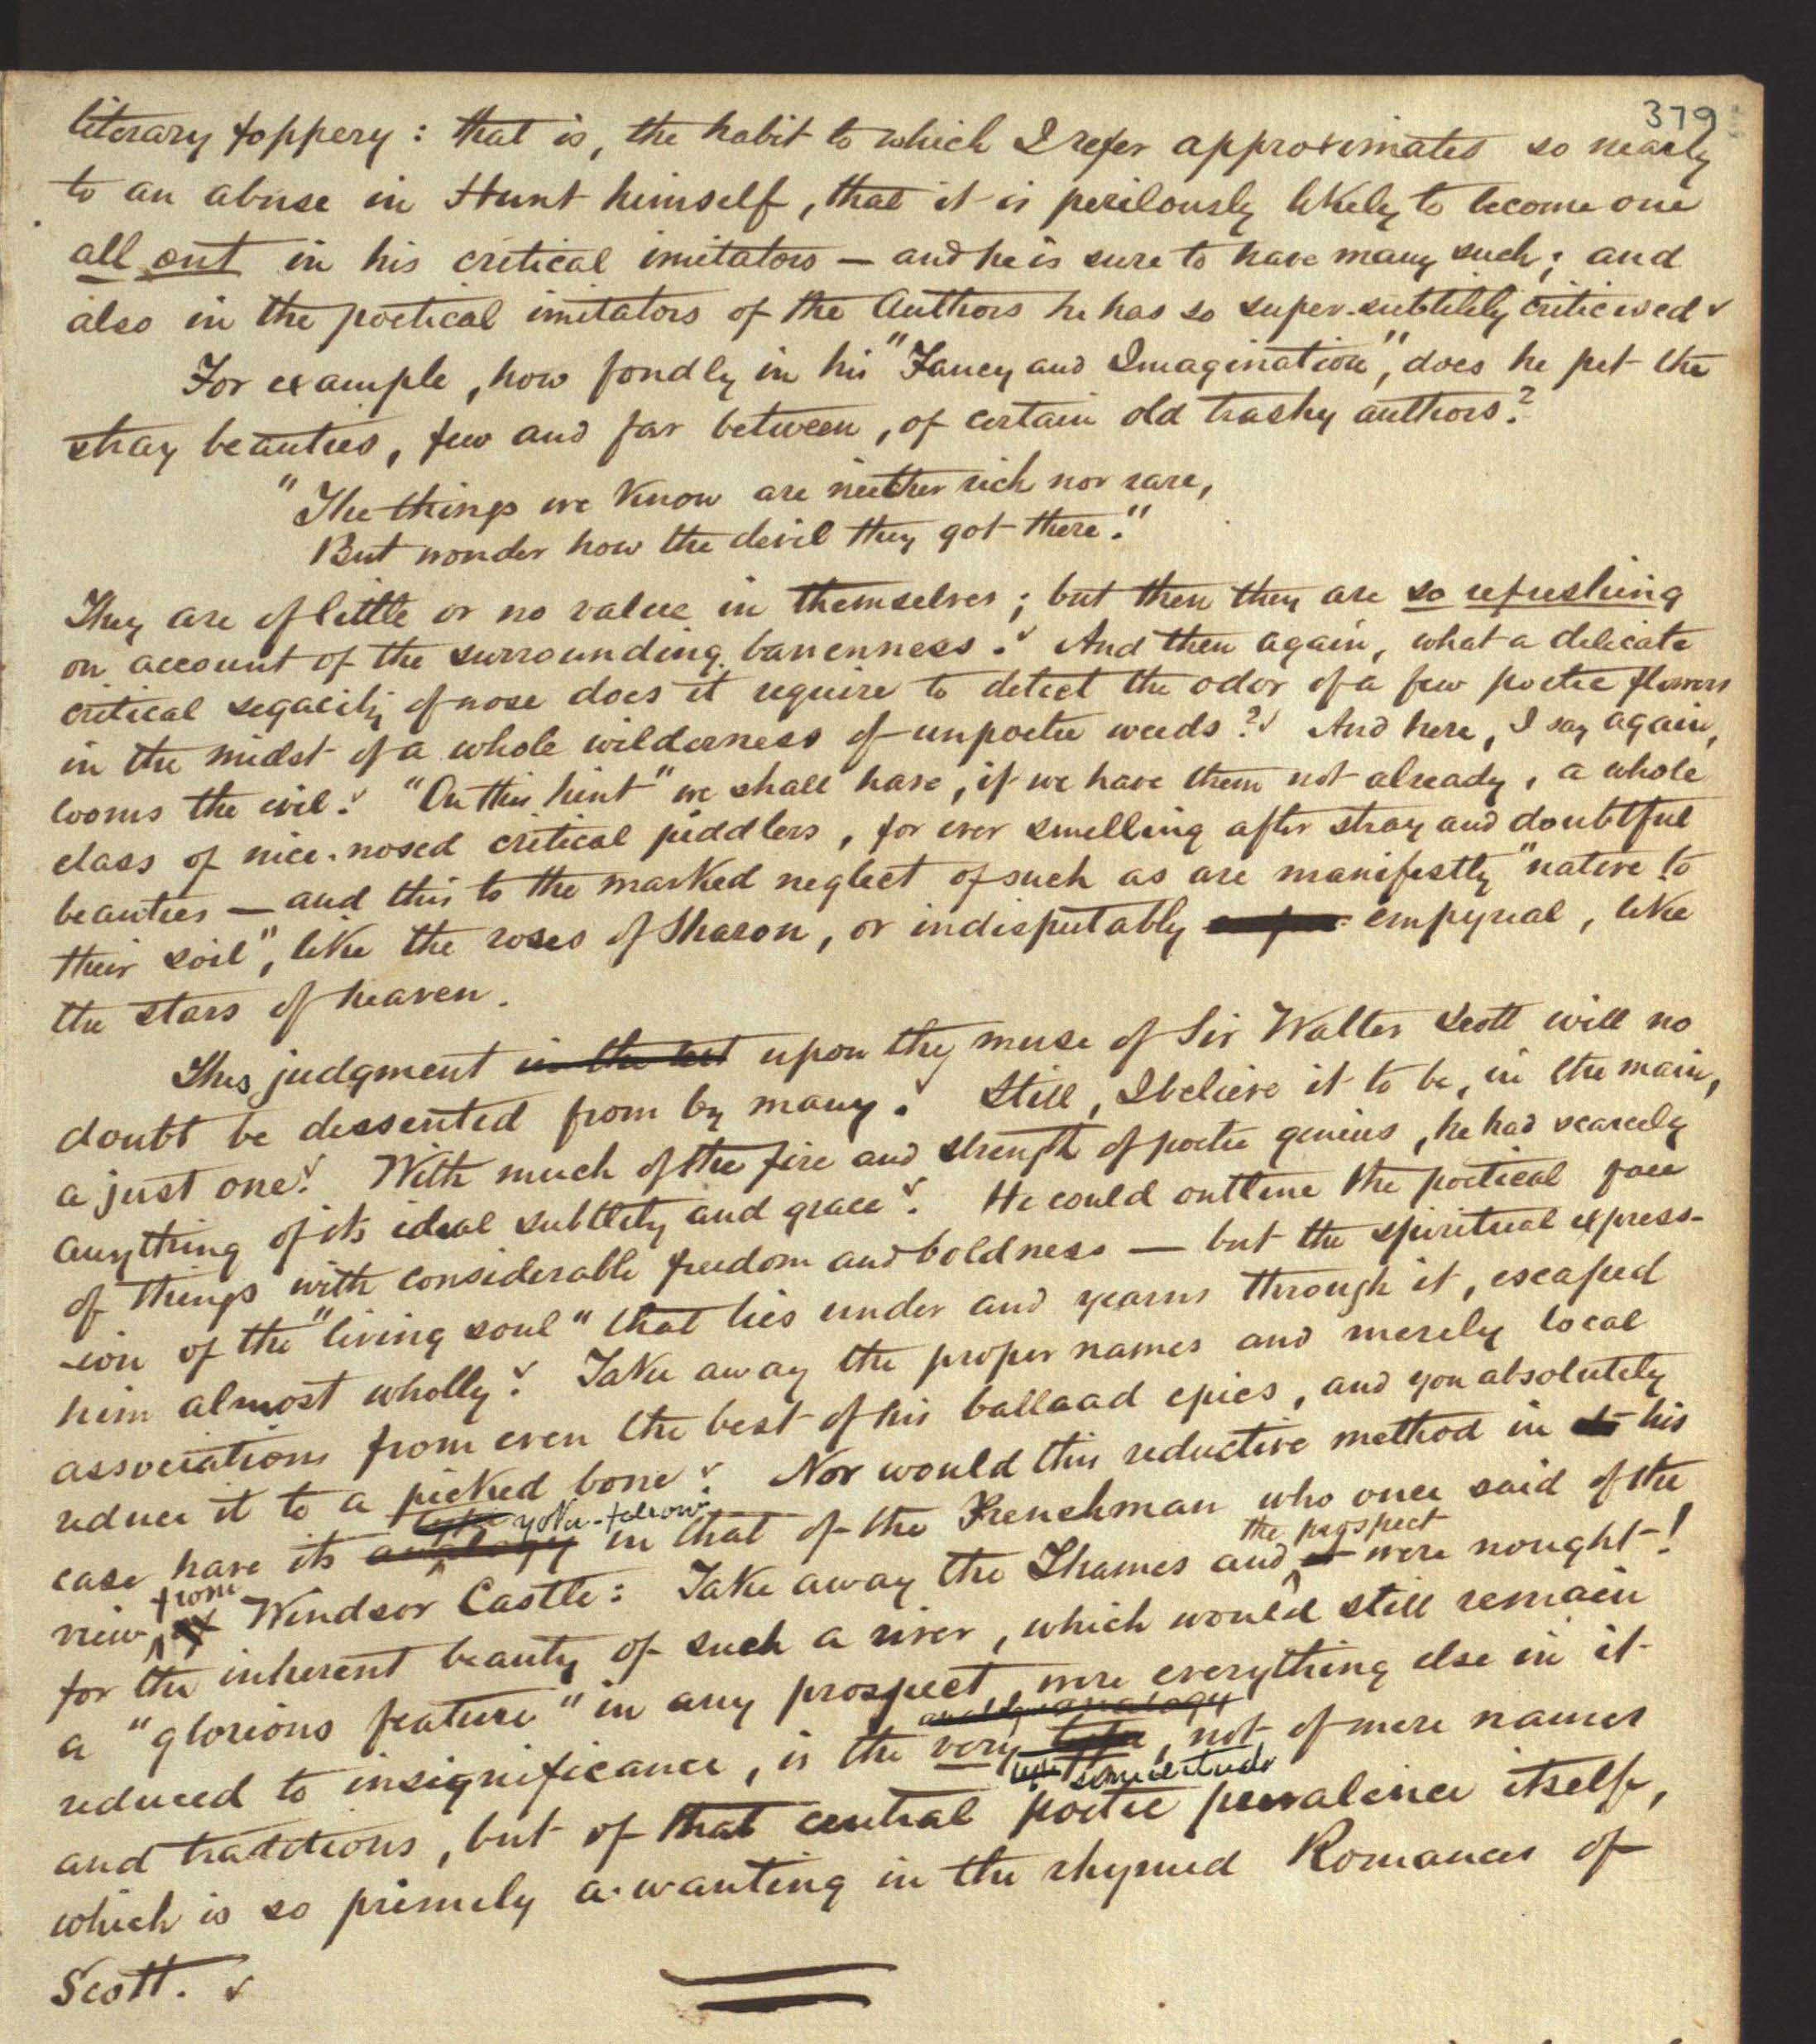 379
literary foppery: that is, the habit to which I refer approximates so nearly
to an abuse in Hunt himself, that it is perilously likely to become one
all out in his critical imitators — and he is sure to have many such; and
also in the poetical imitators of the Authors he has so super-subtilely criticised
For example, how fondly in his "Fancy and Imagination", does he pet the
stray beauties, few and far between, of certain old trashy authors?
"The things we know are neither rich nor rare,
But wonder how the devil they got there."
They are of little or no value in themselves; but then they are so refreshing
on account of the surrounding barrenness. And then again, what a delicate
critical segacity of nose does it require to detect the odor of a few poetic flowers
in the midst of a whole wilderness of unpoetic weeds? And here, I say again,
looms the evil. "On this hint" we shall have, if we have them not already, a whole
class of nice-nosed critical piddlers, for ever smelling after stray and doubtful
beauties — and this to the marked neglect of such as are manifestly "native to
their soil", like the roses of Sharon, or indisputably empyreal, like
the stars of heaven.
This judgment in the text upon the muse of Sir Walter Scott will no
doubt be dessented from by many. Still, I believe it to be, in the main,
a just one. With much of the fire and strength of poetic genius, he had scarcely
anything of its ideal subtlety and grace. He could outline the poetical face
of things with considerable freedom and boldness — but the spiritual express-
-ion of the "living soul" that lies under and yearns through it, escaped
him almost wholly. Take away the proper names and merely local
associations from even the best of his ballaad epics, and you absolutely
reduce it to a picked bone. Nor would this reductive method in his
case have its analogy yoke-fellow in that of the Frenchman who once said of the
view from Windsor Castle: Take away the Thames and the prospect were nought!
for the inherent beauty of such a river, which would still remain
a "glorious feature" in any prospect, were everything else in it
reduced to insignificance, is the very analogy type similitude, not of mere names
and traditions, but of that central poetic prevalence itself,
which is so primely a-wanting in the rhymed Romances of
Scott.